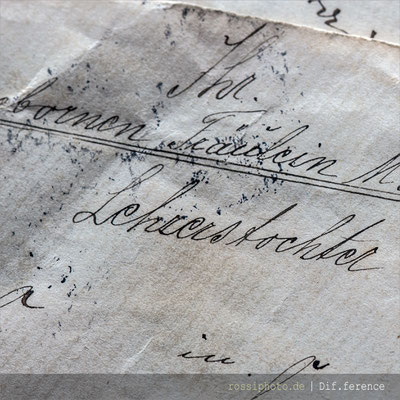 Ihr
bornen Fräulein M
Lehrerstochter
in
rossiphoto.de | Dif.ference